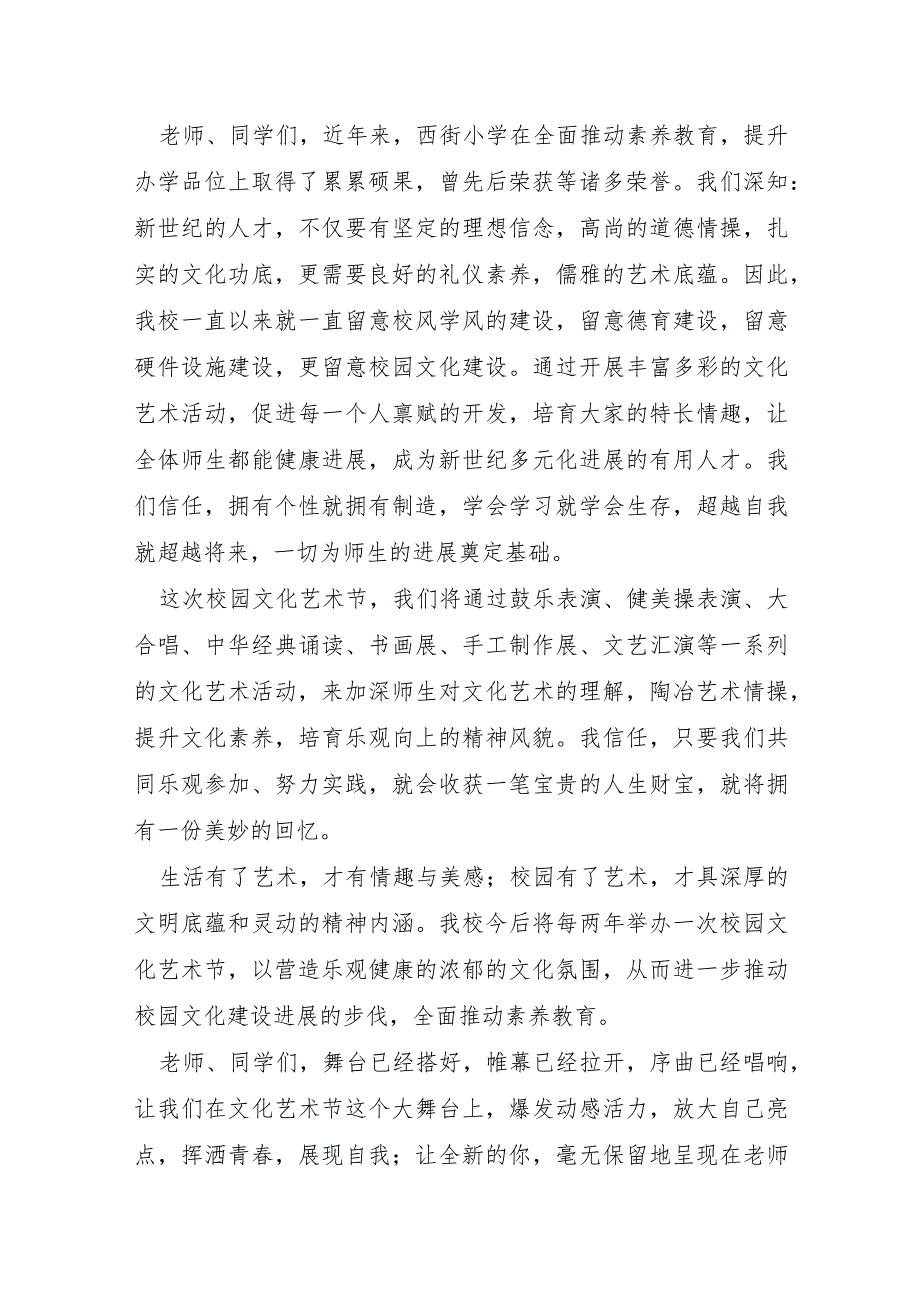 老师、同学们，近年来，西街小学在全面推动素养教育，提升
办学品位上取得了累累硕果，曾先后荣获等诸多荣誉。我们深知：
新世纪的人才，不仅要有坚定的理想信念，高尚的道德情操，扎
实的文化功底，更需要良好的礼仪素养，儒雅的艺术底蕴。因此，
我校一直以来就一直留意校风学风的建设，留意德育建设，留意
硬件设施建设，更留意校园文化建设。通过开展丰富多彩的文化
艺术活动，促进每一个人禀赋的开发，培育大家的特长情趣，让
全体师生都能健康进展，成为新世纪多元化进展的有用人才。我
们信任，拥有个性就拥有制造，学会学习就学会生存，超越自我
就超越将来，一切为师生的进展奠定基础。
这次校园文化艺术节，我们将通过鼓乐表演、健美操表演、大
合唱、中华经典诵读、书画展、手工制作展、文艺汇演等一系列
的文化艺术活动，来加深师生对文化艺术的理解，陶冶艺术情操，
提升文化素养，培育乐观向上的精神风貌。我信任，只要我们共
同乐观参加、努力实践，就会收获一笔宝贵的人生财宝，就将拥
有一份美妙的回忆。
生活有了艺术，才有情趣与美感；校园有了艺术，才具深厚的
文明底蕴和灵动的精神内涵。我校今后将每两年举办一次校园文
化艺术节，以营造乐观健康的浓郁的文化氛围，从而进一步推动
校园文化建设进展的步伐，全面推动素养教育。
老师、同学们，舞台已经搭好，帷幕已经拉开，序曲已经唱响，
让我们在文化艺术节这个大舞台上，爆发动感活力，放大自己亮
点，挥洒青春，展现自我；让全新的你，毫无保留地呈现在老师